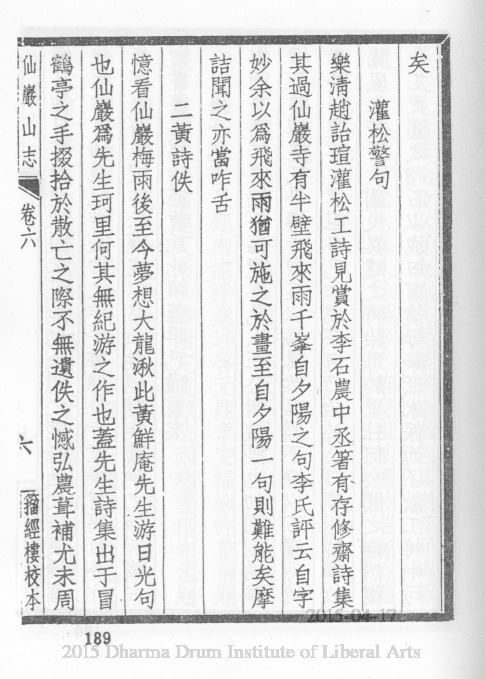 矣
灌松警句
樂清趙詒瑄灌松工詩見賞於李石農中丞箸有存修齋詩集
其過仙巖寺有半壁飛來雨千峯自夕陽之句李氏評云自字
妙余以爲飛來雨猶可施之於畫至自夕陽一句則難能矣摩
詰聞之亦當咋舌
二黃詩佚
憶看仙巖梅雨後至今夢想大龍湫此黃鮮庵先生游日光句
也仙巖爲先生珂里何其無紀游之作也蓋先生詩集出于冒
鶴亭之手掇拾於散亡之際不無遺佚之憾弘農葺補尤未周
仙巖山志
卷六
六
籀經樓校本
189
2015-04-17
2015 Dharma Drum Institute of Liberal Arts